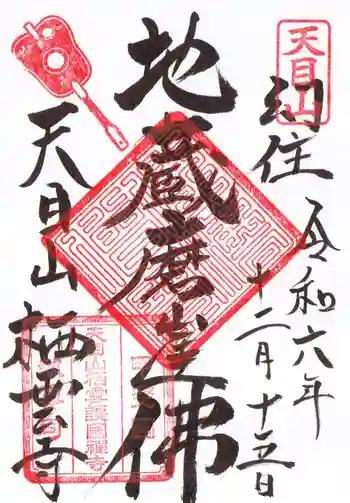 天目山
幻住
令和六年
十二月十五日
地蔵磨崖佛
天目山 栖雲寺
天目山栖雲護國禅寺